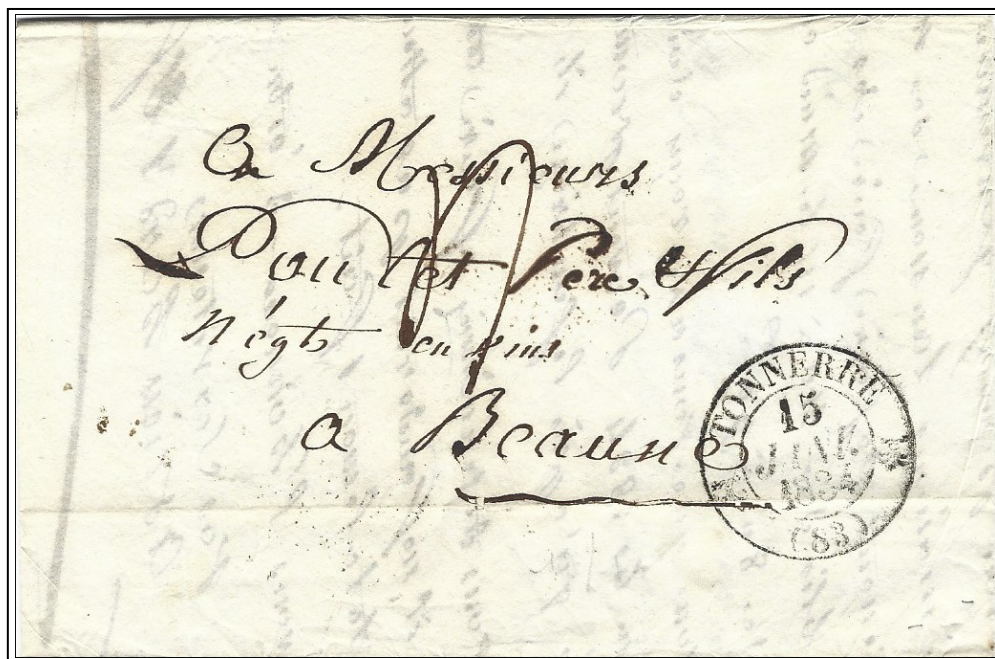 A Messieurs
Poulet Pere & fils
Négts en vins
a Beaune
TONNERRE
15
JANV.
1834
(83)